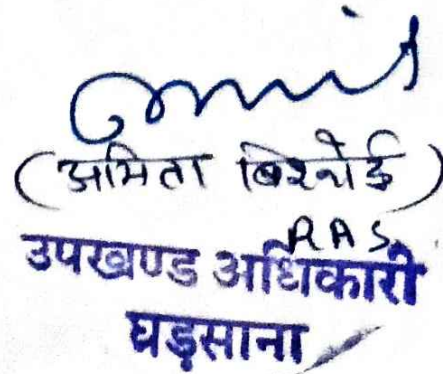 (अमिता बिश्नोई)
RAS
उपखण्ड अधिकारी
घड़साना